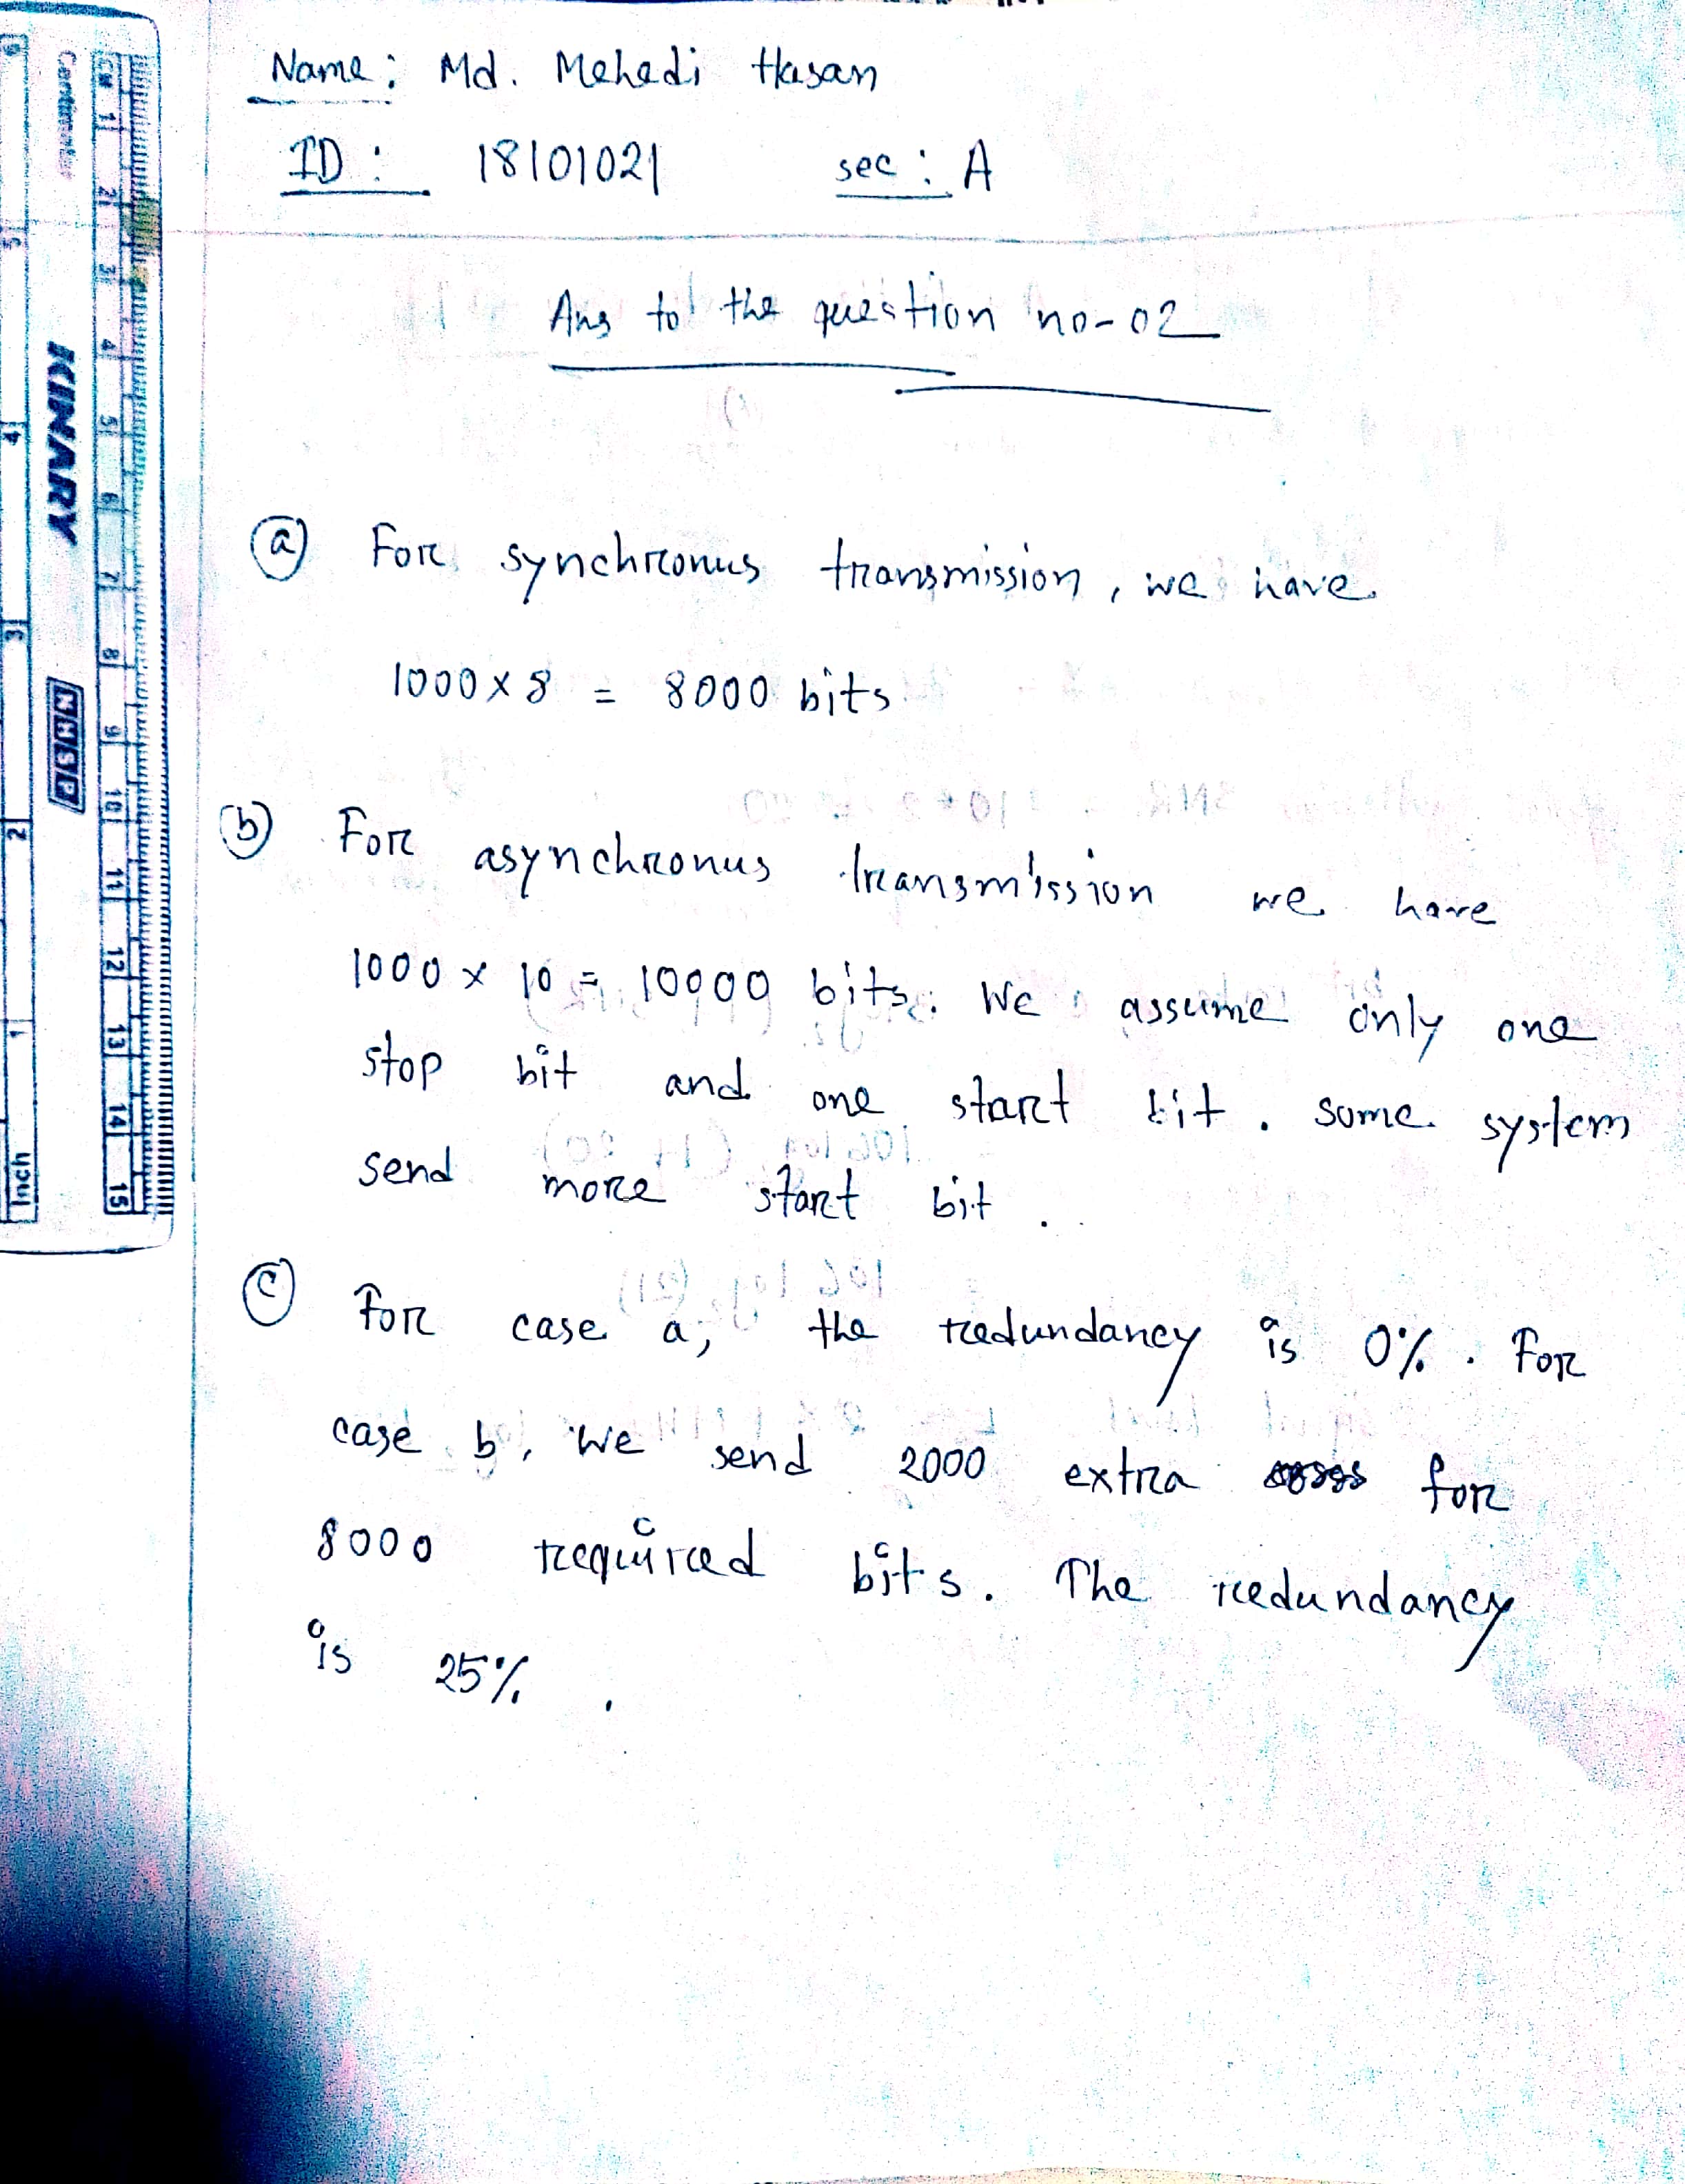 Name: Md. Mehedi Hasan
ID: 18101021 sec: A
Ans to the question no-02
(a) For synchronus transmission, we have
1000 x 8 = 8000 bits
(b) For asynchronus transmission we have
1000 x 10 = 10000 bits. We assume only one
stop bit and one start bit. Some system
send more start bit.
(c) For case a, the redundancy is 0%. For
case b, we send 2000 extra for
8000 required bits. The redundancy
is 25%.
Centimeter
KINARY
CM 1 2 3 4 5 6 7 8 9 10 11 12 13 14 15
6 5 4 3 2 1 Inch